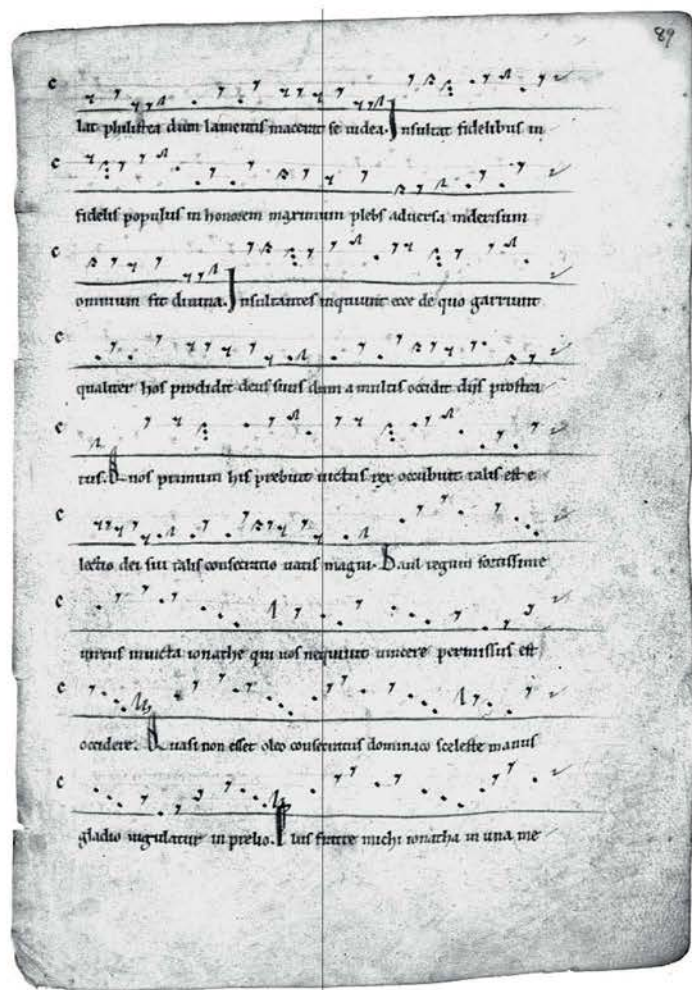 89
c lat philistea dum lamentis macerat se iudea. Insultat fidelibus in
c fidelis populus in honorem maximum plebs adversa inderisum
c omnium fit divina. Insultantes inquiunt ecce de quo garriunt
c qualiter hos prodidit deus suus dum a multis occidit diis prostra
c tus. Quos primum his prebuit victus rex occubuit talis est e
c lectio dei sui talis consecratio vatis magni. Saul regum fortissime
c virtus invicta ionathe qui vos nequivit vincere permissus est
c occidere. Quasi non esset oleo consecratus dominico sceleste manus
c gladio iugulatur in prelio. Plus fratre michi ionatha in una me